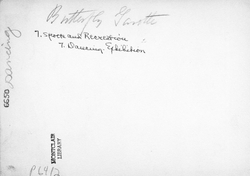 Butterfly
7. Sports and Recreation
7. Dancing Exhibition
dancing
6650
MONTCLAIR
LIBRARY